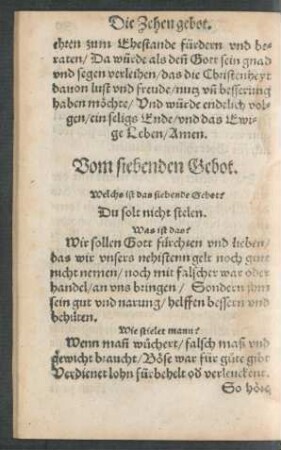 Die Zehen gebot.
ehren zum Ehestande fürdern vnd be-
raten / Da würde als deñ Gott sein gnad
vnd segen verleihen / das die Christenheyt
dauon lust vnd freude / nutz vñ besserung
haben möchte / Vnd würde endelich vol-
gen / ein seligs Ende / vnd das Ewi-
ge Leben / Amen.
Vom siebenden Gebot.
Welchs ist das siebende Gebot?
Du solt nicht stelen.
Was ist das?
Wir sollen Gott fürchten vnd lieben /
das wir vnsers nehisten gelt noch gut
nicht nemen / noch mit falscher war oder
handel / an vns bringen / Sondern jhm
sein gut vnd narung / helffen bessern vnd
behüten.
Wie stielet mann?
Wenn mañ wüchert / falsch maß vnd
gewicht braucht / Böse war für güte gibt
Verdienet lohn fürbehelt od verleuckent.
So höre